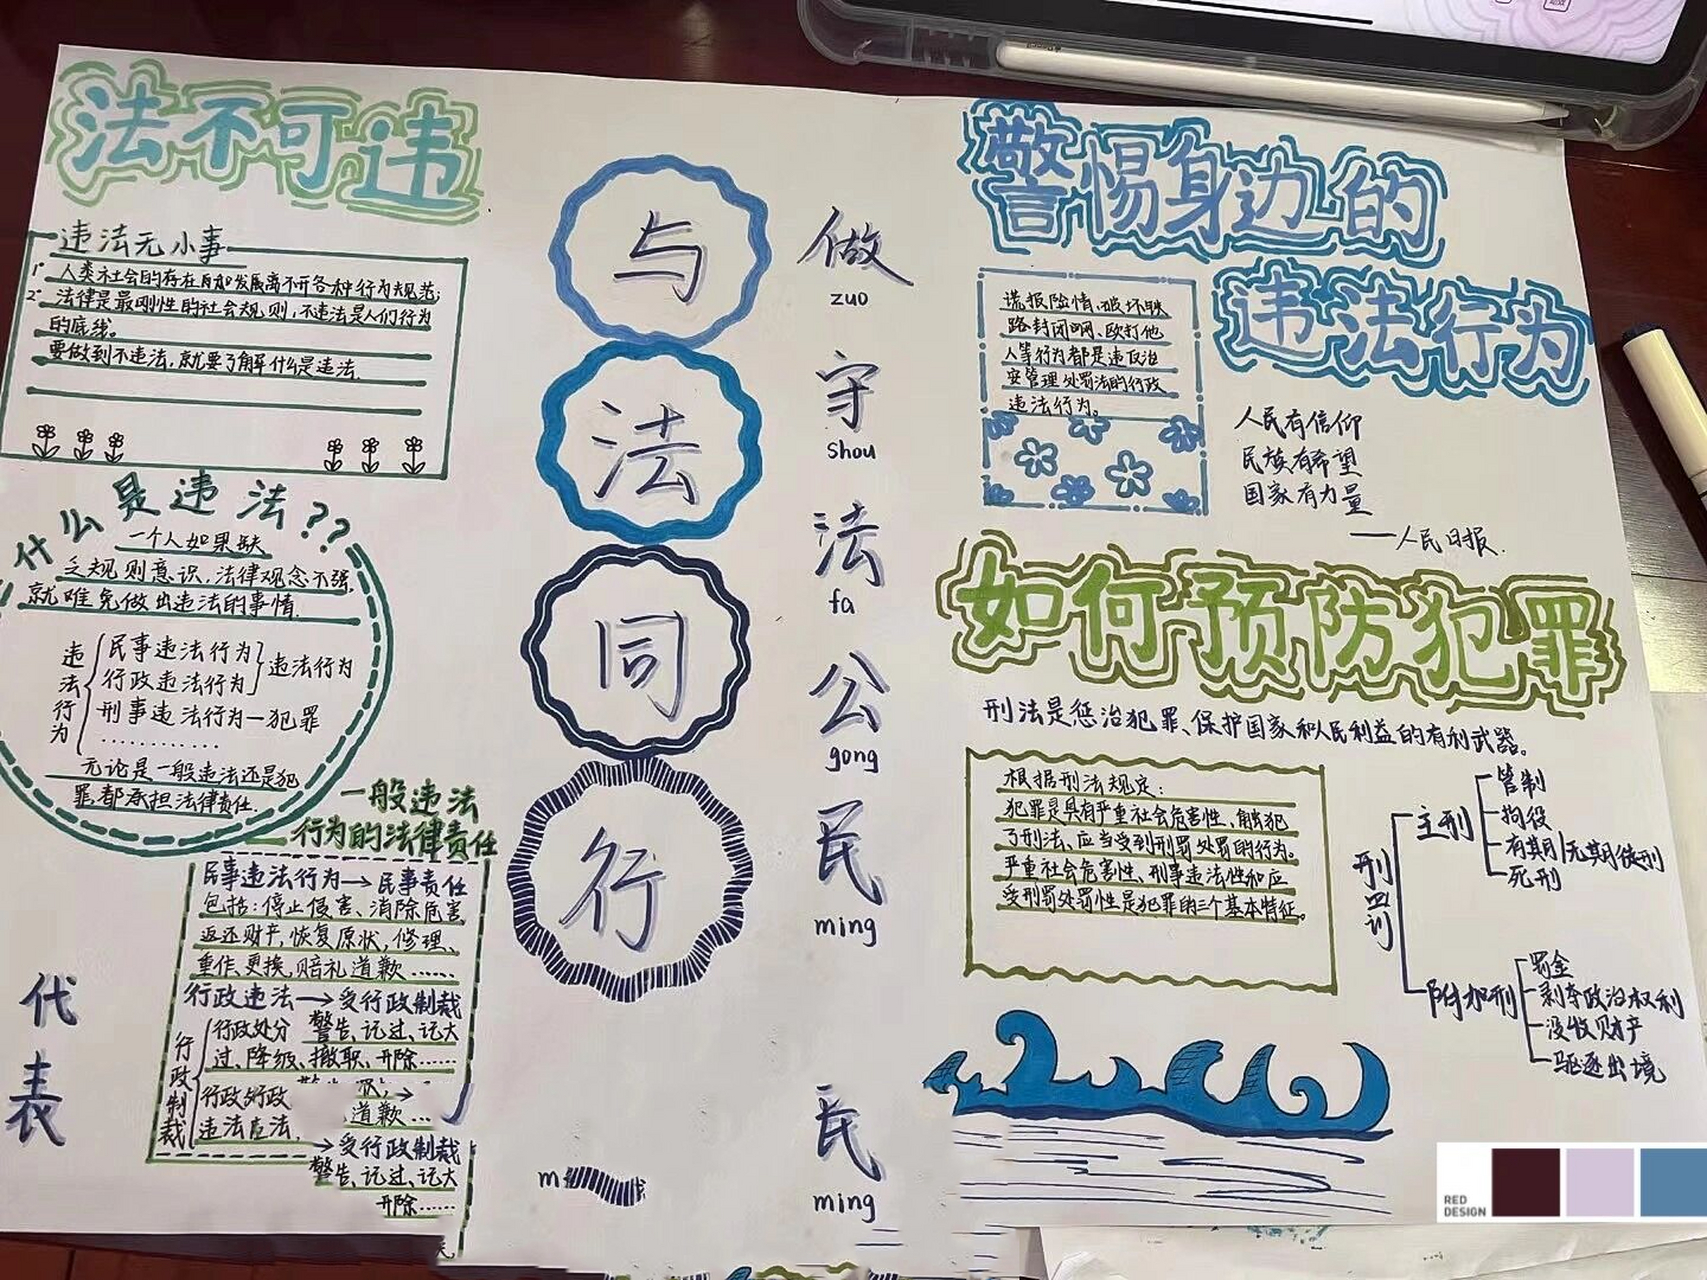 法不可违
违法无小事
1° 人类社会的存在和发展离不开各种行为规范;
2° 法律是最刚性的社会规则,不违法是人们行为
的底线。
要做到不违法,就要了解什么是违法.
什么是违法??
一个人如果缺
乏规则意识,法律观念不强,
就难免做出违法的事情.
违法行为
民事违法行为
行政违法行为
违法行为
刑事违法行为—犯罪
…………
无论是一般违法还是犯
罪,都承担法律责任.
一般违法
行为的法律责任
民事违法行为→民事责任
包括:停止侵害、消除危害
返还财产,恢复原状,修理、
重作,更换,赔礼道歉……
行政违法→受行政制裁
行政制裁
行政处分 警告、记过、记大
过、降级、撤职、开除……
行政
违法
道歉…
→受行政制裁
警告、记过、记大
开除……
代表
与
法
同
行
做
zuo
守
shou
法
fa
公
gong
民
ming
民
ming
m
警惕身边的
违法行为
谎报险情,破坏铁
路封闭网、殴打他
人等行为都是违反治
安管理处罚法的行政
违法行为。
人民有信仰
民族有希望
国家有力量
——人民日报.
如何预防犯罪
刑法是惩治犯罪、保护国家和人民利益的有利武器。
根据刑法规定:
犯罪是具有严重社会危害性、触犯
了刑法、应当受到刑罚处罚的行为。
严重社会危害性、刑事违法性和应
受刑罚处罚性是犯罪的三个基本特征。
刑罚
主刑
管制
拘役
有期/无期徒刑
死刑
附加刑
罚金
剥夺政治权利
没收财产
驱逐出境
RED
DESIGN